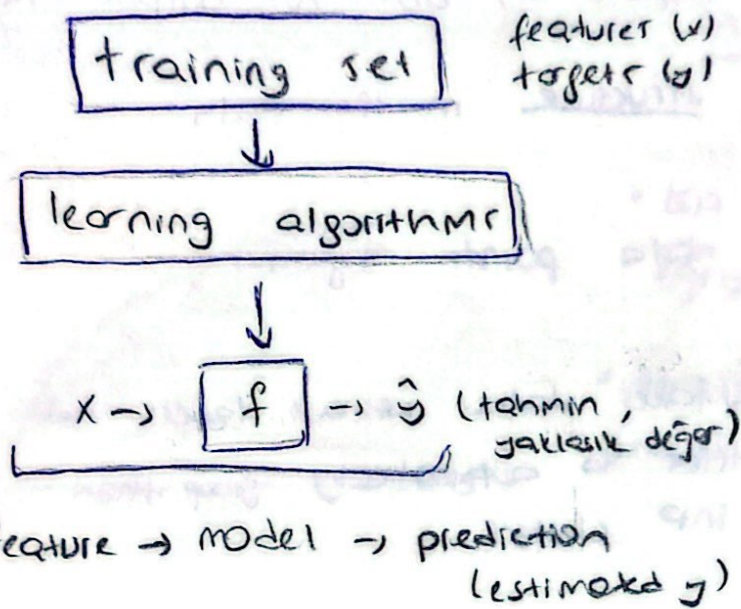 features (x)
training set
targets (y)
learning algorithms
x → f → ŷ (tahmin,
yaklaşık değer)
eature → model → prediction
(estimated y)